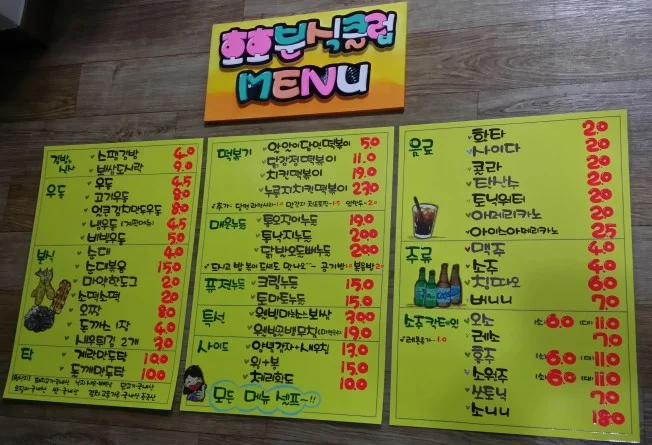 호호분식클럽
MENU
김밥
식사
스팸김밥 4.0
9.0
우동
우동 4.5
고기우동 8.0
얼큰김치만두우동 8.0
냉우동 4.5
비빔우동 5.0
분식
순대 4.0
순대볶음 15.0
마약핫도그 2.0
소떡소떡 2.0
오짱 8.0
돈까스 1장 4.0
새우튀김 2개 3.0
탕
계란만두탕 10.0
들깨만두탕 10.0
떡볶기
당면떡볶이 5.0
닭강정떡볶이 11.0
치킨떡볶이 19.0
누룽지치킨떡볶이 23.0
매운누들
투움자누들 19.0
통낙지누들 20.0
닭발오돌뼈누들 20.0
드시고 밥 볶아 드셔도 맛나요~ 공기밥 1.0 볶음밥 2.0
퓨전누들
크림누들 15.0
토마토누들 15.0
특선
보쌈 30.0
19.0
사이드
양념감자+새우칩 13.0
윗+봉 15.0
체리핫도 10.0
모든 메뉴 셀프~!!
음료
환타 2.0
사이다 2.0
콜라 2.0
탄산수 2.0
토닉워터 2.0
아메리카노 2.0
아이스아메리카노 2.5
주류
맥주 4.0
소주 4.0
6.0
버니니 7.0
소주칵테일
와소 (소) 6.0 (대) 11.0
레소 7.0
홍주 (소) 6.0 (대) 11.0
소원주 (소) 6.0 (대) 11.0
쏘토닉 7.0
소니니 18.0